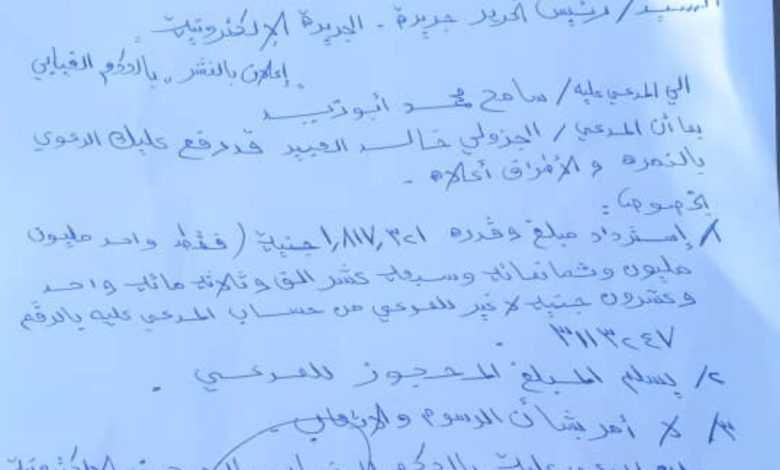 السيد/ رئيس تحرير جريدة - الجريدة الإلكترونية
إعلان بالنشر "بالحكم الغيابي"
الي المدعي عليه/ سامح محمد أبوزيد
بما أن المدعي/ الجزولي خالد العبيد قد رفع عليك الدعوي
بالنمره و الأطراف أعلاه -
بخصوص:
١/ إسترداد مبلغ وقدره ١,٨١٧,٣٢١ جنية (فقط واحد مليون
مليون وثمانمائة وسبعة عشر الف وثلاثة مائة واحد
وعشرون جنية لا غير للمدعي من حساب المدعي عليه بالرقم
٣١١٣٢٤٧ .
٢/ يسلم المبلغ المحجوز للمدعي .
٣/ لا أمر بشأن الرسوم والاتعاب .
عليك بالحكم